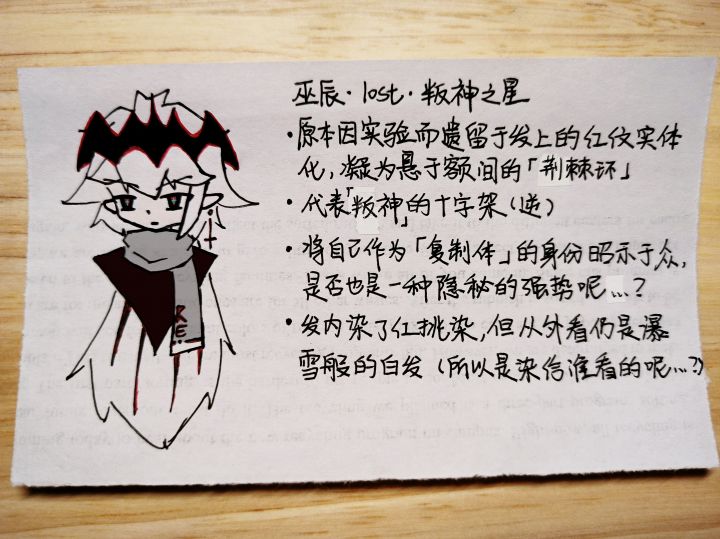 巫辰·lost·叛神之星
·原本因实验而遗留于发上的红纹实体
化，凝为悬于额间的「荆棘环」
·代表「叛神」的十字架（逆）
·将自己作为「复制体」的身份昭示于众，
是否也是一种隐秘的强势呢…？
·发内染了红挑染，但从外看仍是瀑
雪般的白发（所以是染给谁看的呢…？）
RE: